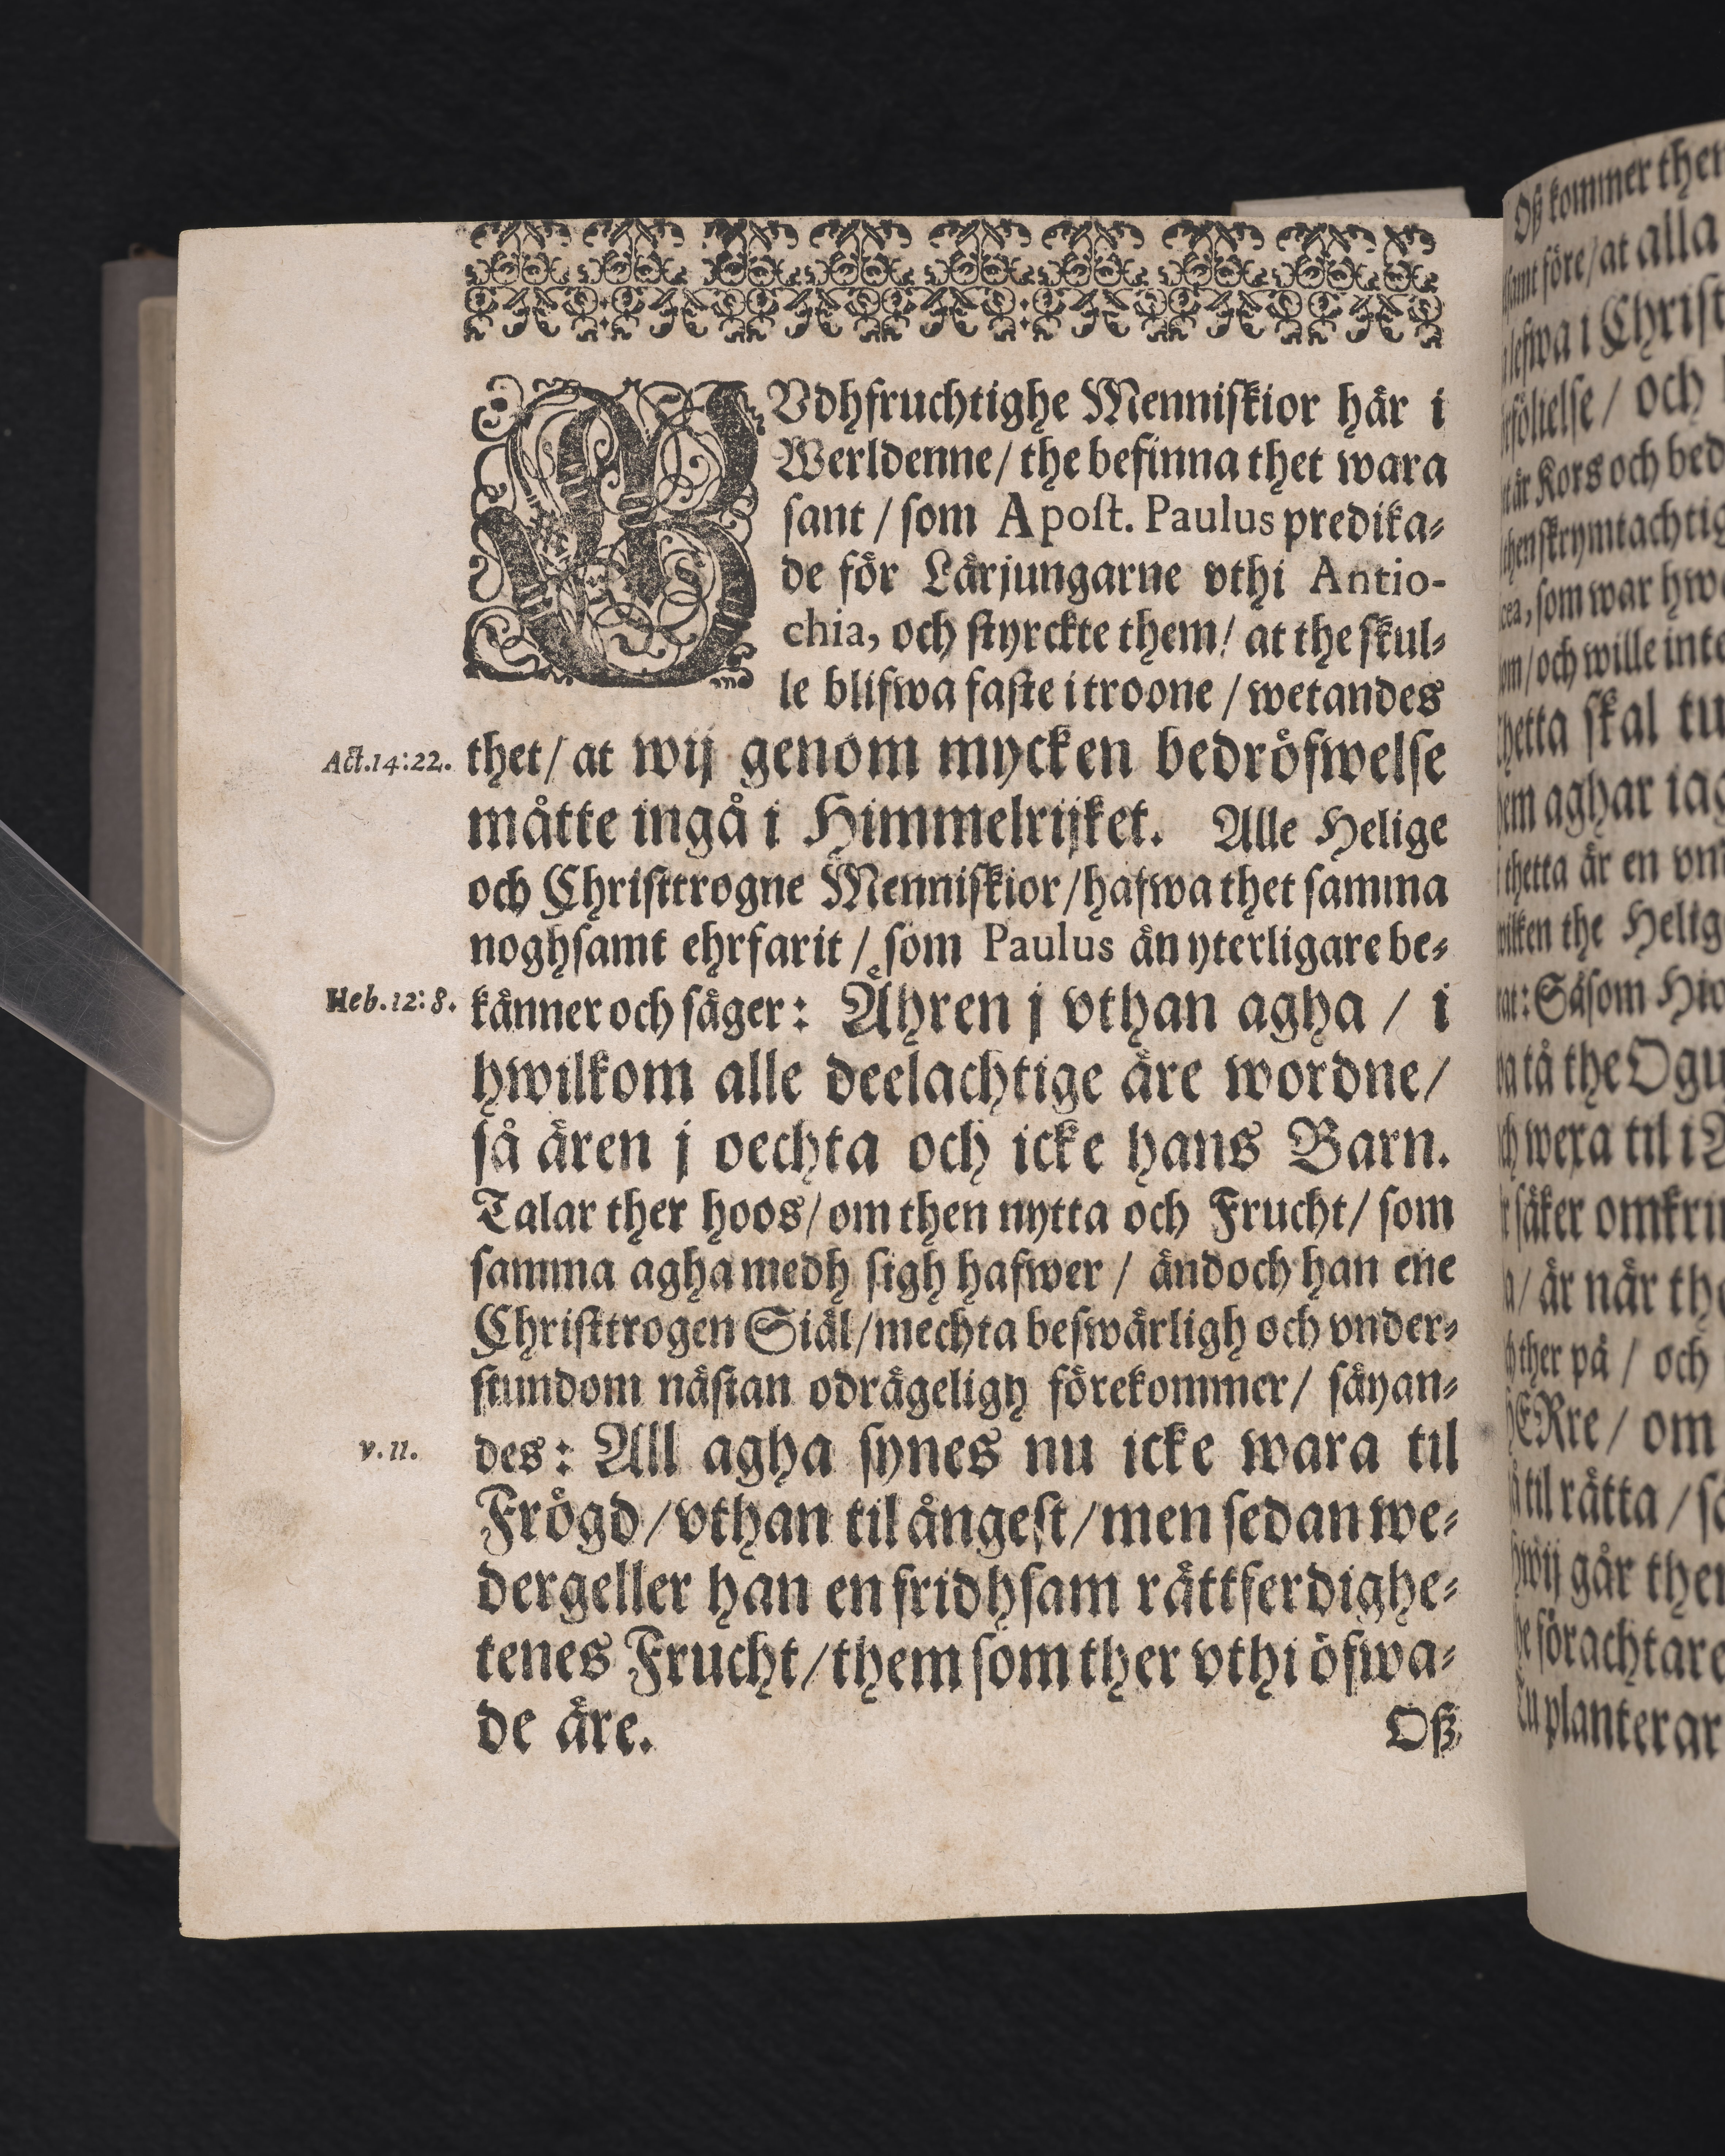 GVdhfruchtighe Menniſkior här i
Werldenne/ the befinna thet wara
ſant / ſom Apoſt. Paulus predika⸗
de för Lärjungarne vthi Antio-
chia, och ſtyrckte them/ at the ſkul⸗
le blifwa faſte i troone / wetandes
Act.14:22. thet/ at wij genom mycken bedröfwelſe
måtte ingå i Himmelrijket. Alle Helige
och Chriſttrogne Menniſkior/hafwa thet ſamma
noghſamt ehrfarit / ſom Paulus än yterligare be⸗
Heb.12:8. känner och ſäger: Ähren j vthan agha / i
hwilkom alle deelachtige äre wordne/
ſå ären j oechta och icke hans Barn.
Talar ther hoos/ om then nytta och Frucht/ ſom
ſamma agha medh ſigh hafwer / ändoch han ene
Chriſttrogen Siäl/mechta beſwärligh och vnder⸗
ſtundom näſtan odrägeligh förekommer/ ſäyan⸗
v.11. des: All agha ſynes nu icke wara til
Frögd/vthan til ångeſt/men ſedan we⸗
dergeller han en fridhſam rättferdighe⸗
tenes Frucht/them ſom ther vthi öfwa⸗
de äre.
Oß
Oß kommer then
före/at alla
i Chriſt
/ och
är Kors och bed
ſkrymtachtig
, ſom war hwa
/och wille inte
hetta ſkal tu
aghar iag
thetta är en
the Helig
: Såſom
tå the Ogu
wexa til i
ſäker omkrin
/ är när the
ther på / och
HERre/ om
til rätta / ſå
går then
förachtare
Tu planterar